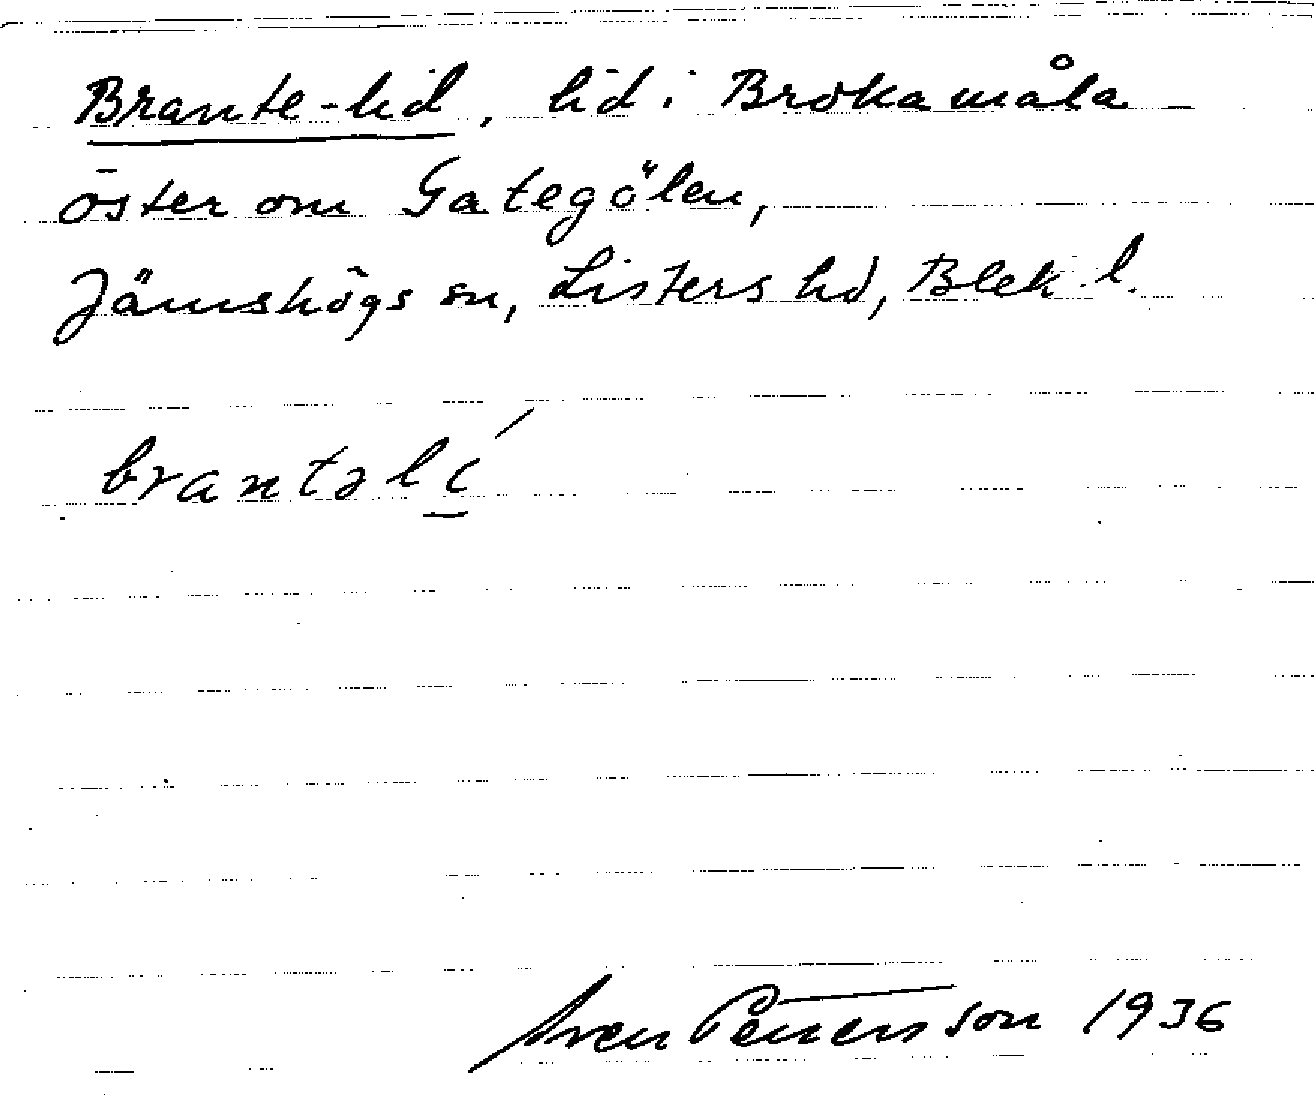 Brante-lid, lid i Brokamåla
öster om Gategölen,
Jämshögs sn, Listers hd, Blek. l.
brantəlí
Sven Petersson 1936